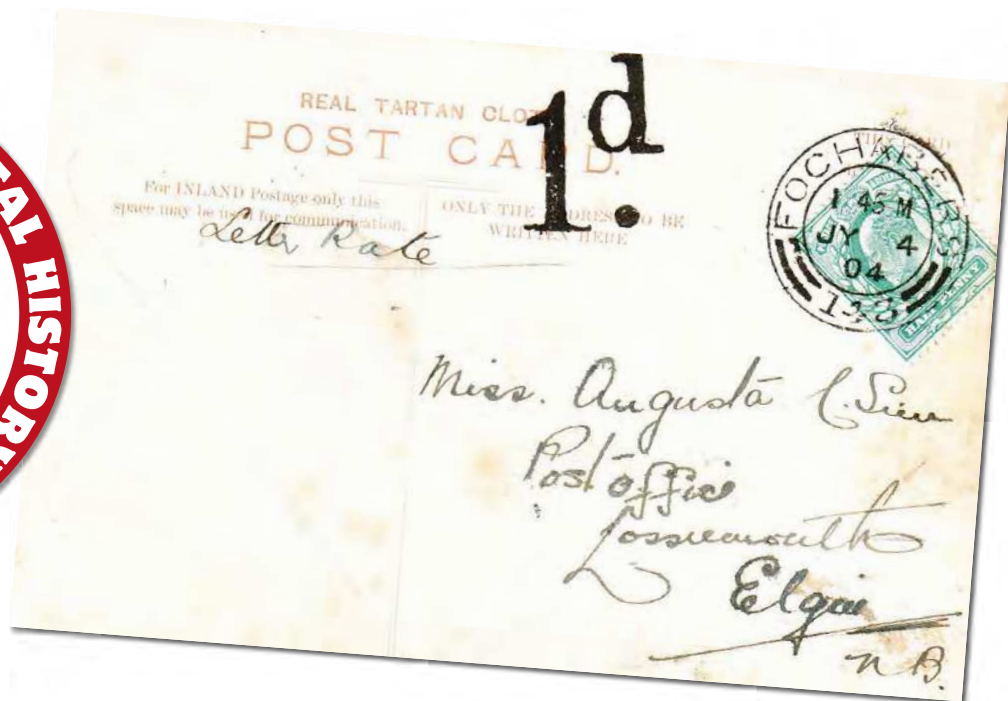 REAL TARTAN
POST CARD.
1d.
For INLAND Postage only this
space may be used for communication.
ONLY THE ADDRESS TO BE
WRITTEN HERE
Letter Rate
FOCHABERS
1 45 M
JY 4
04
HALFPENNY
Miss. Augusta C.
Post office
Lossiemouth
Elgin
N B.
HISTORY